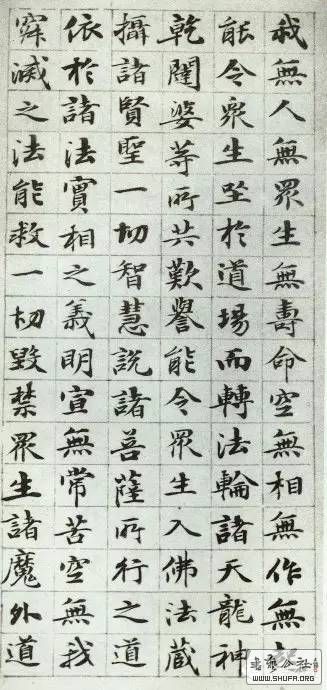 我無人無眾生無壽命空無相無作無
能令眾生坐於道場而轉法輪諸天龍神
乾闥婆等所共歎譽能令眾生入佛法藏
攝諸賢聖一切智慧說諸菩薩所行之道
依於諸法實相之義明宣無常苦空無我
寂滅之法能救一切毀禁眾生諸魔外道
書法公社
WWW.SHUFA.ORG